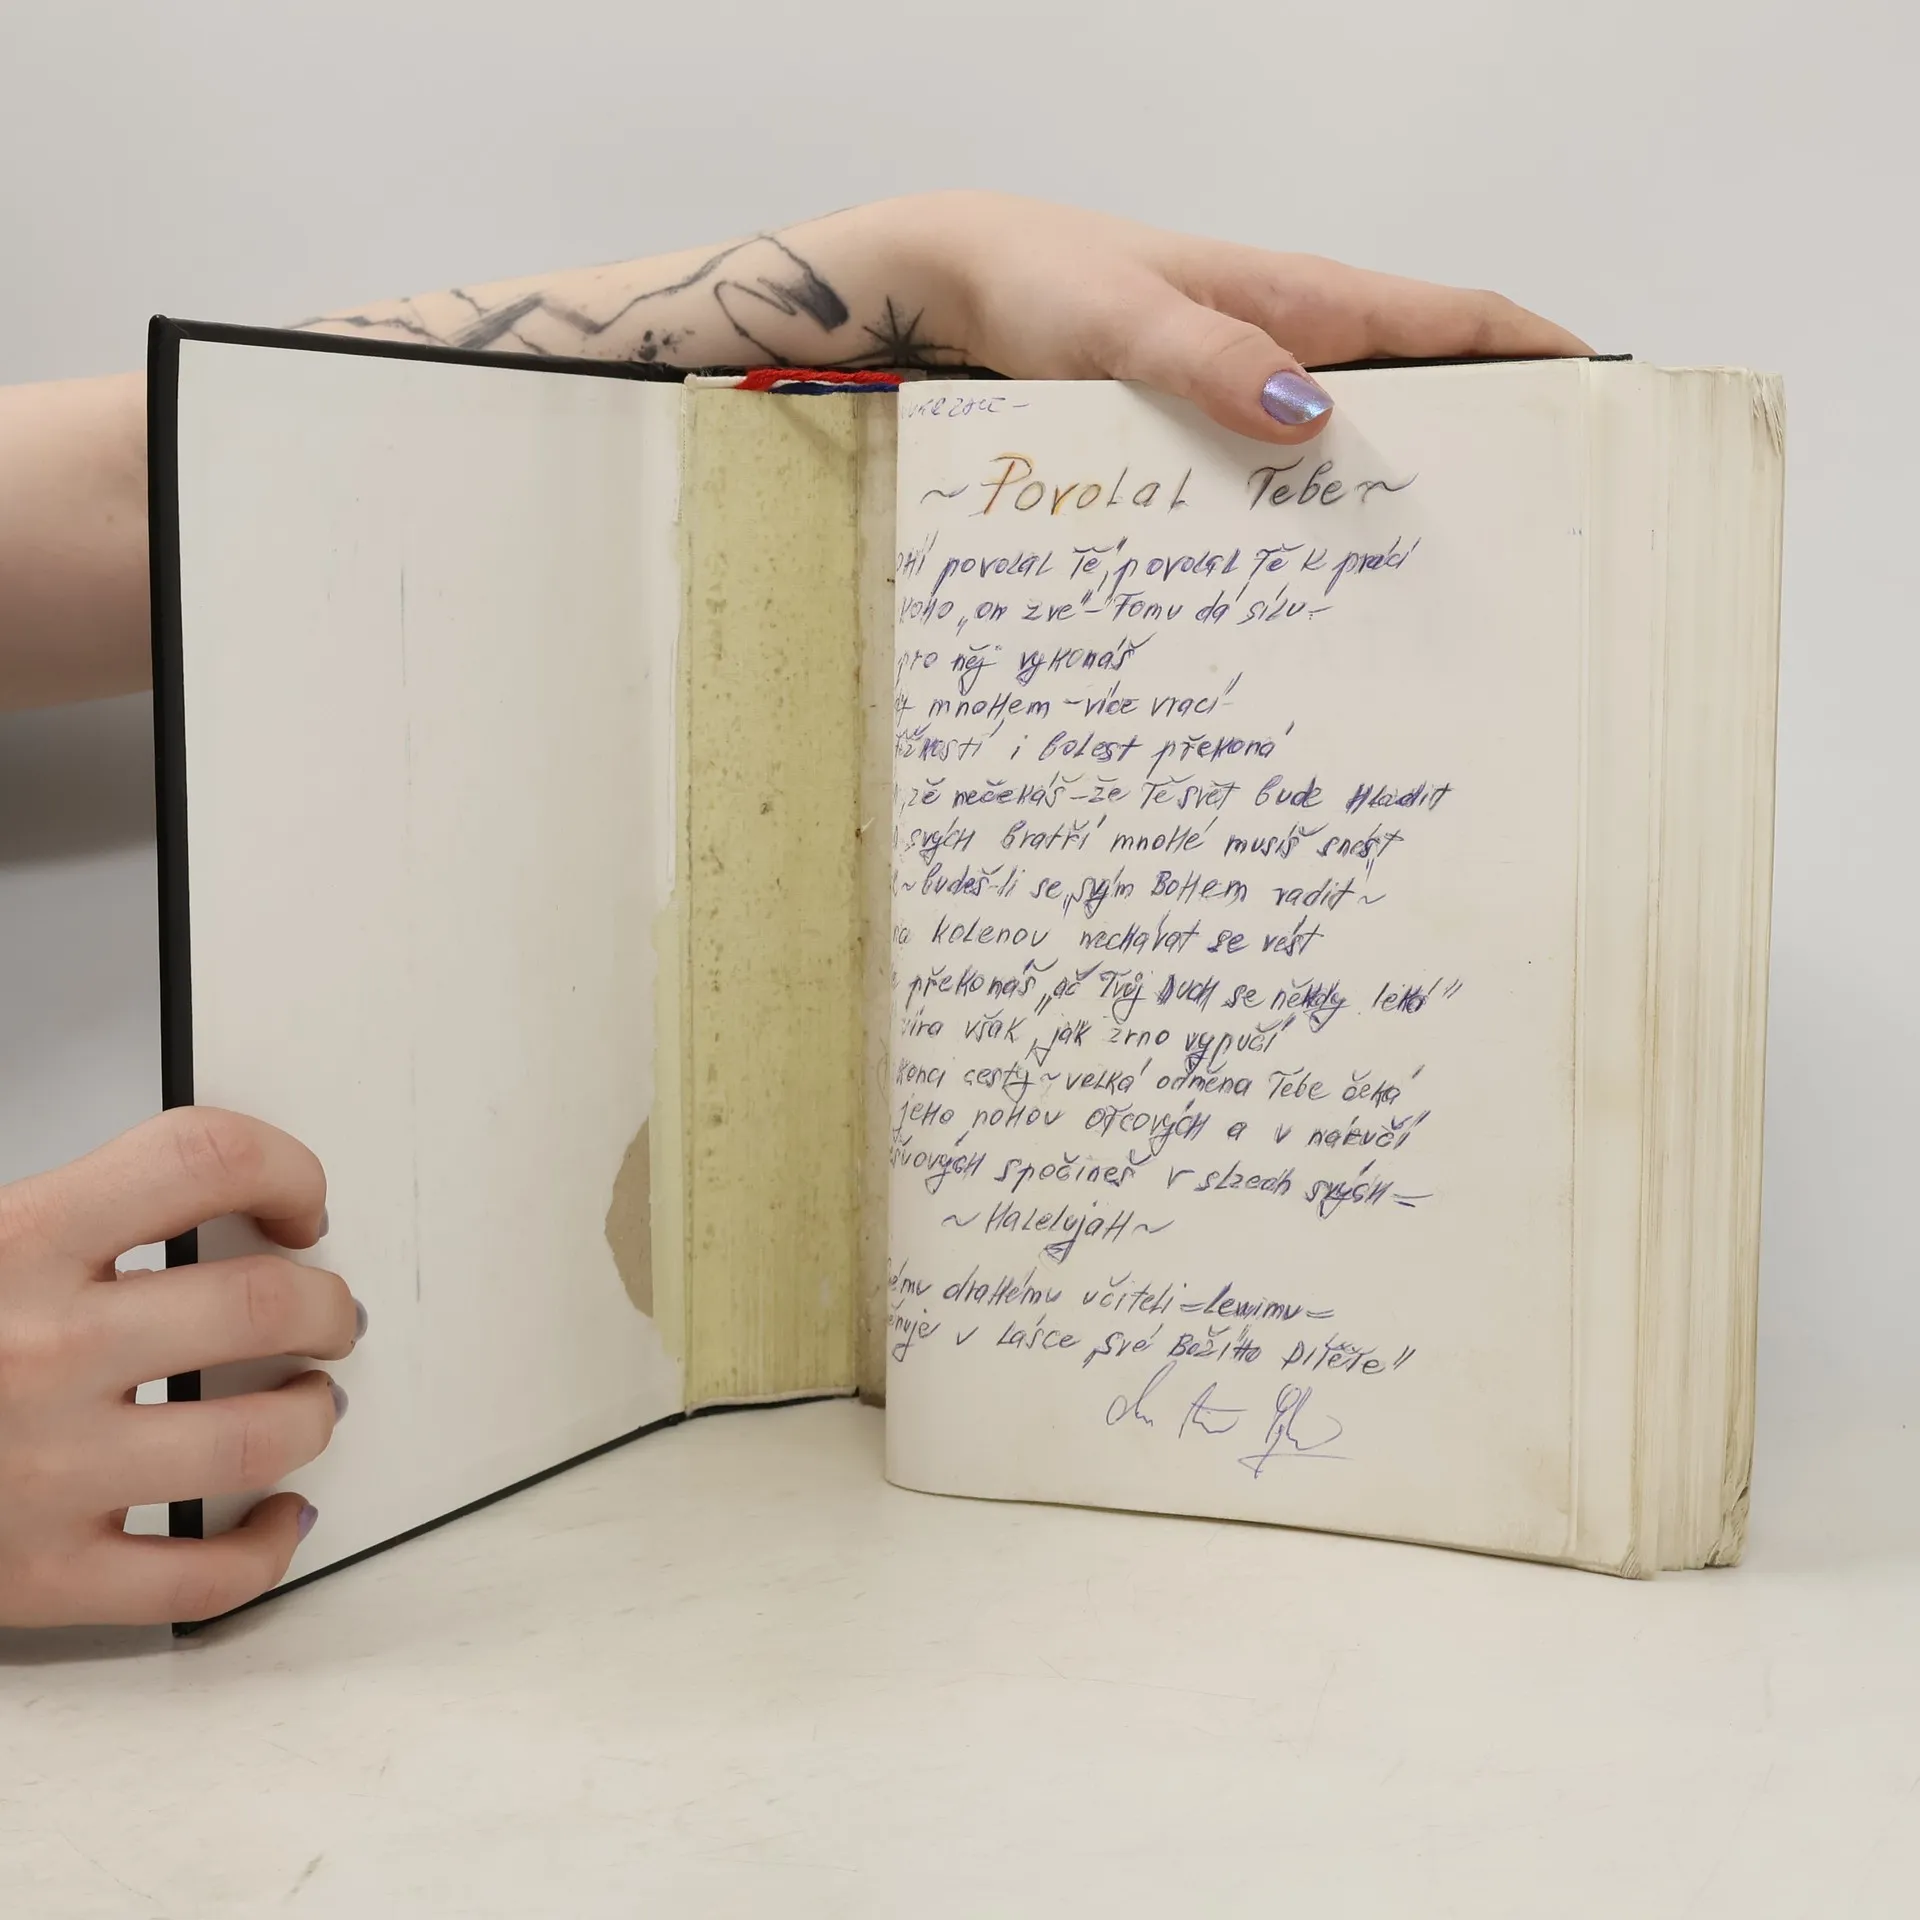 ~ Povolal Tebe ~
povolal Tě, povolal Tě k práci
koho „on zve" - Tomu dá sílu -
pro něj vykonáš
mnohem - více vrací -
i bolest překoná
že nečekáš - že Tě svět bude hladit
svých bratří mnohé musíš snést
~ budeš-li se „svým Bohem radit ~
kolenou nechávat se vést
překonáš „ač Tvůj Duch se někdy leká"
víra však „jak zrno vypučí"
konci cesty ~ velká odměna Tebe čeká
jeho nohou otcových a v náručí
spočineš v slzách svých =
~ Halelujah ~
drahému učiteli = Lewimu =
věnuje v Lásce „své Božího Dítěte"